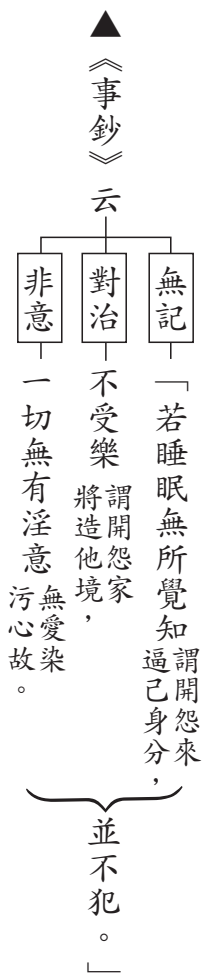 ▲《事鈔》云
無記
「若睡眠無所覺知謂開怨來逼己身分，
對治
不受樂謂開怨家將造他境，
非意
一切無有淫意無愛染污心故。
並不犯。」